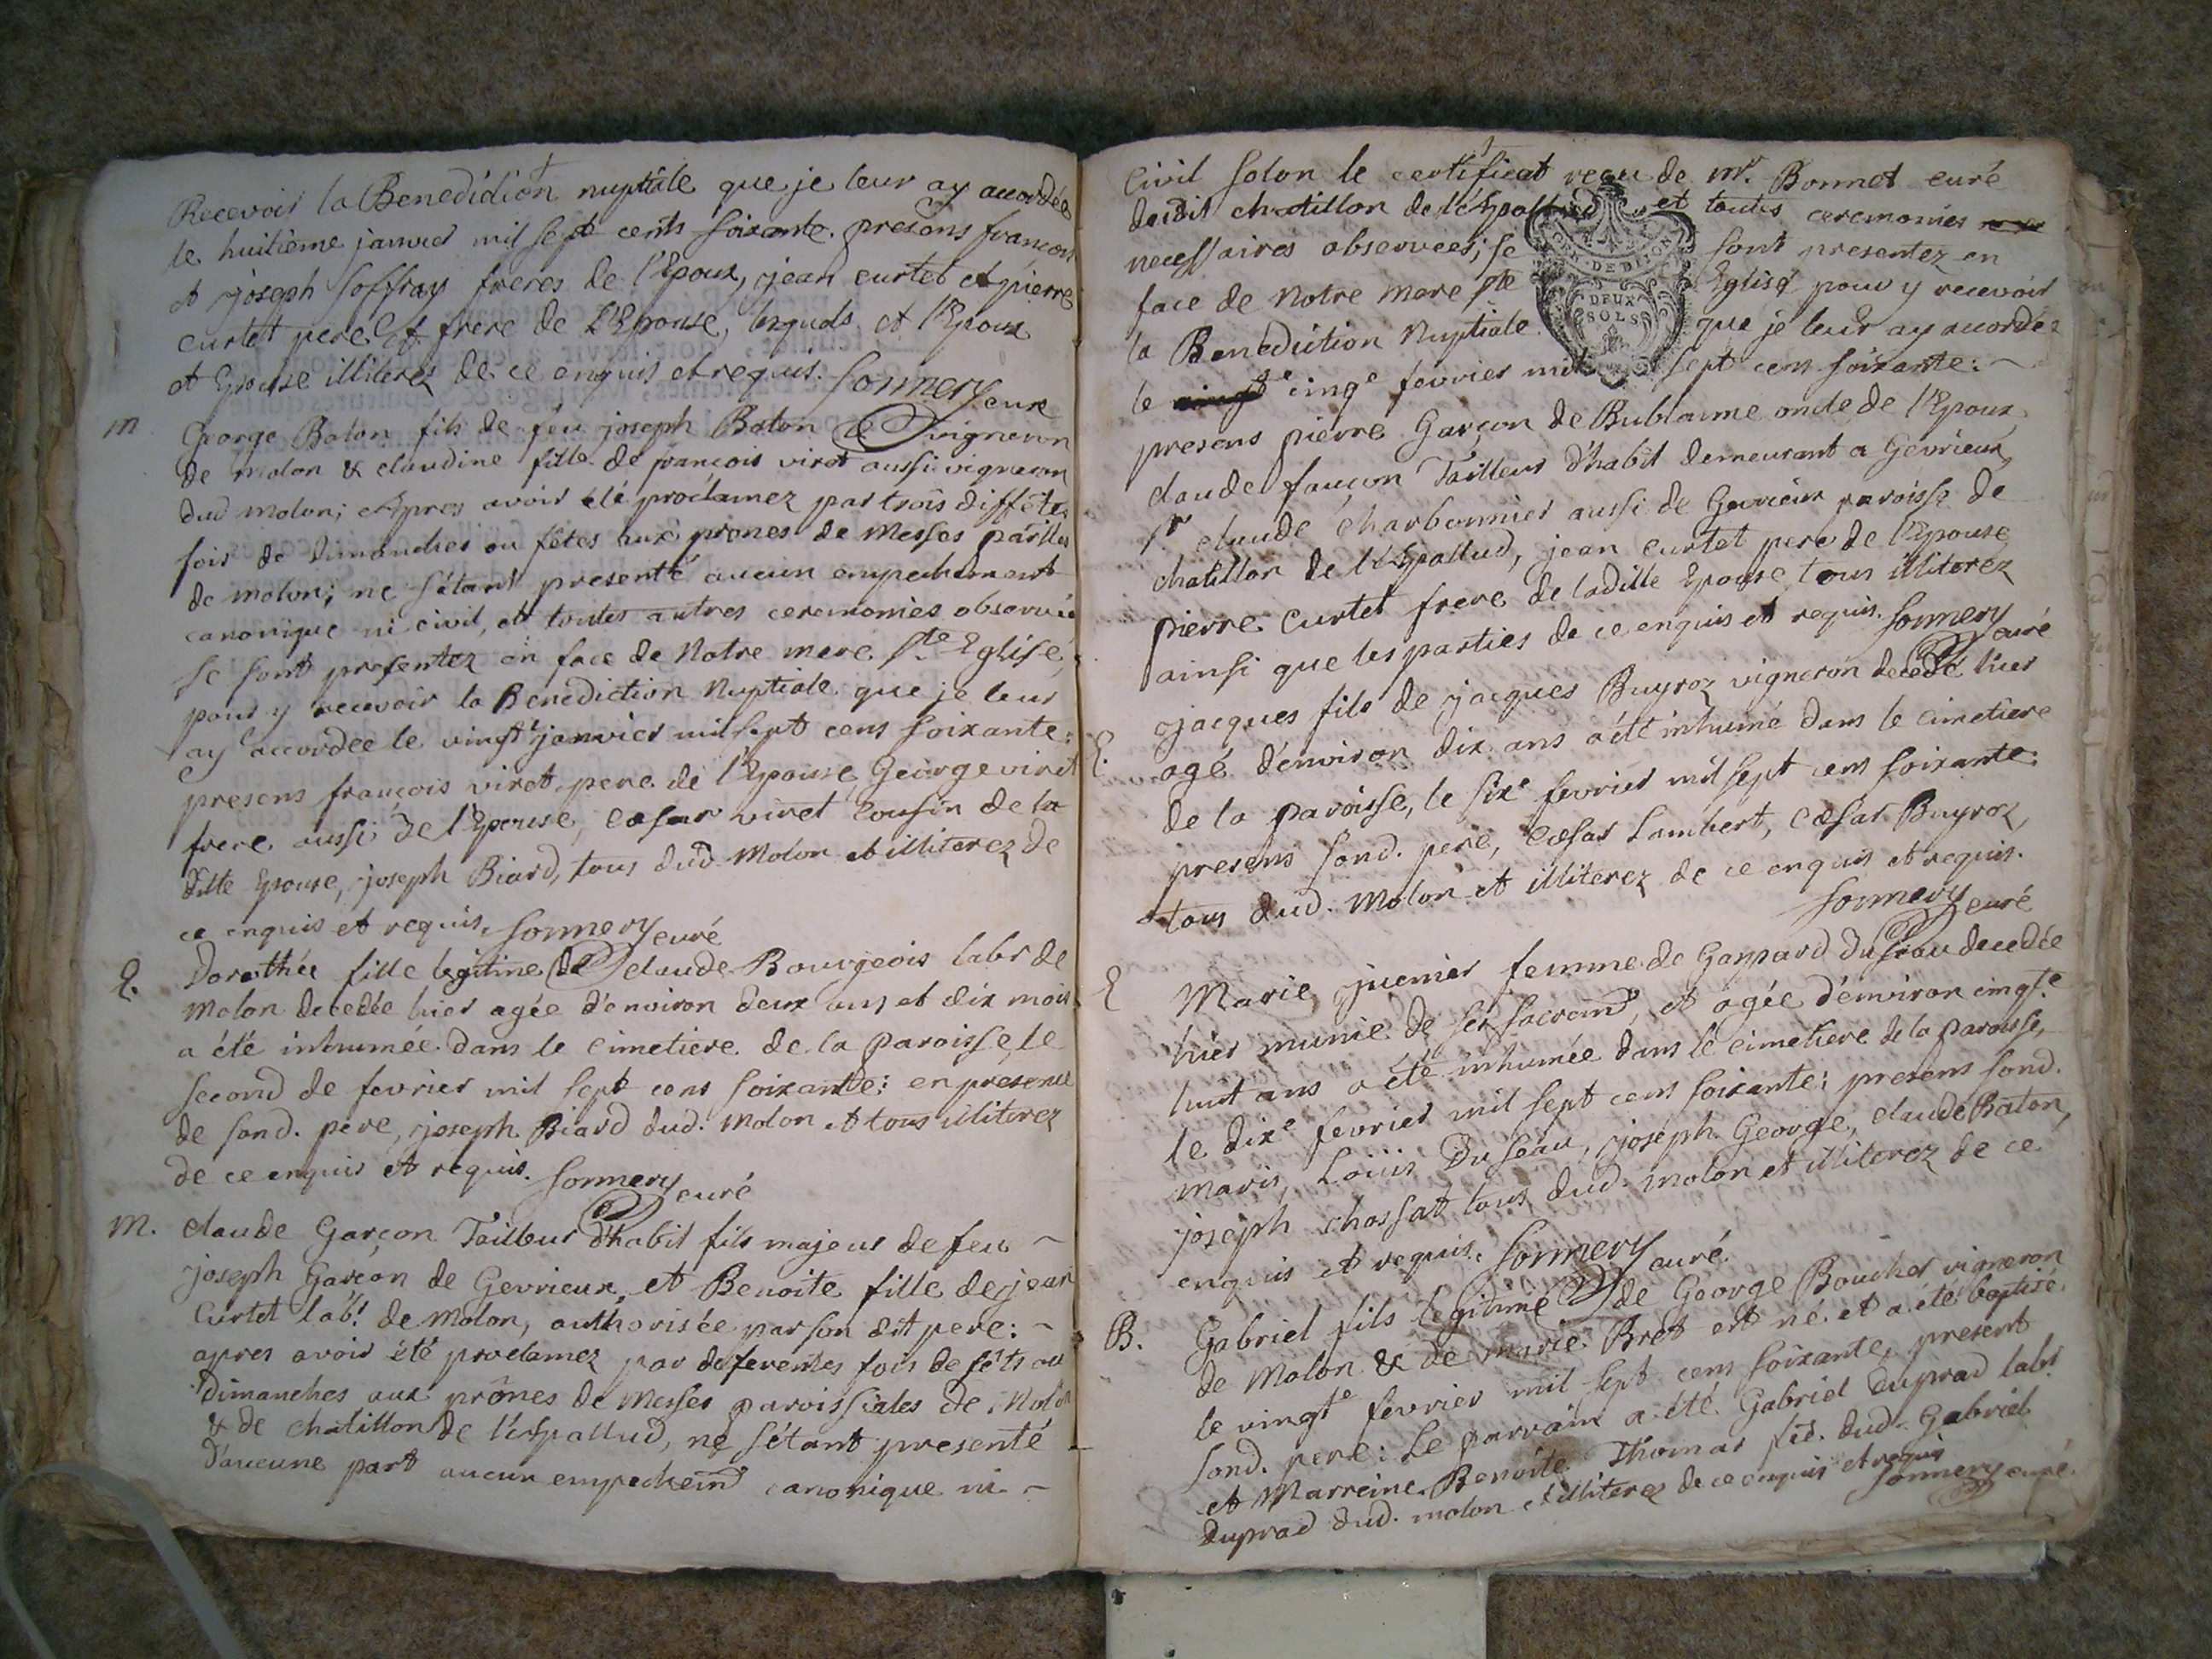 Recevoir la Benediction nuptiale que je leur ay accordée
le huitieme janvier mil sept cents soixante. presens francois
et joseph Soffray freres de l'Epoux, jean curtet et pierre
curtet pere et frere de L'Epouse, lesquels et l'Epoux
et Epouse illiterez de ce enquis et requis. Sonnery curé
m George Baton fils de feu joseph Baton vigneron
de molon & claudine fille de francois viret aussi vigneron
dud molon; apres avoir été proclamez par trois differtes
fois de dimanches ou fêtes aux prones de Messes parllles
de molon; ne s'étant presenté aucun empechement
canonique ni civil, et toutes autres ceremonies observées
se sont presentez en face de Notre mere ste Eglise,
pour y recevoir la Benediction Nuptiale que je leur
ay accordée le vingt janvier mil sept cens soixante:
presens francois viret pere de l'Epouse, George viret
frere aussi de l'Epouse, Cæsar viret Cousin de la
ditte Epouse, joseph Biard, tous dud. Molon et illiterez de
ce enquis et requis. Sonnery curé
E. Dorothée fille legitime de claude Bourgeois labr de
Molon decedée hier agée d'environ deux ans et dix mois
a été inhumée dans le Cimetiere de la paroisse, le
second de fevrier mil sept cens soixante: en presence
de sond. pere, joseph Biard dud. Molon et tous illiterez
de ce enquis et requis. Sonnery curé
M. claude Garçon Tailleur d'habit fils majeur de feu
joseph Garçon de Gevrieux, et Benoite fille de jean
Curtet labr de Molon, authorisée par son dit pere:
apres avoir été proclamez par deferentes fois de fêts ou
Dimanches aux prônes de Messes paroissiales de Molon
& de chatillon de l'espallud, ne s'étant presenté
d'aucune part aucun empechemt canonique ni
Civil selon le certificat reçu de mr. Bonnet curé
dudit chatillon de l'Epallud et toutes ceremonies
necessaires observées; se sont presentez en
face de Notre Mere ste Eglise pour y recevoir
la Benediction Nuptiale que je leur ay accordée
le cinqe fevrier mil sept cens soixante:
GEN. DE DIJON
DEUX
SOLS
presens pierre Garçon de Bublanne oncle de l'Epoux,
claude faucon Tailleur d'habit demeurant a Gevrieux,
sr claude Charbonnier aussi de Gevrieux paroisse de
chatillon de l'Epallud, jean Curtet pere de l'Epouse,
pierre Curtet frere de laditte Epouse, tous illiterez
ainsi que les parties de ce enquis et requis. Sonnery curé
E. jacques fils de jacques Buyroz vigneron decedé hier
agé d'environ dix ans a été inhumé dans le Cimetiere
de la paroisse, le sixe fevrier mil sept cens soixante:
presens sond. pere, Cæsar Lambert, Cæsar Buyroz,
tous dud. Molon et illiterez de ce enquis et requis.
Sonnery curé
E Marie juenier femme de Gaspard Duseau decedée
hier munie de ses sacremts, et agée d'environ cinqte
huit ans a été inhumée dans le cimetiere de la paroisse,
le dixe fevrier mil sept cens soixante: presens sond.
maris, Loüis Duseau, joseph George, claude Baton,
joseph chossat tous dud. molon et illiterez de ce
enquis et requis. Sonnery curé.
B. Gabriel fils legitime de George Boucher vigneron
de Molon & de marie Bret est né et a été baptisé
le vingte fevrier mil sept cens soixante, present
sond. pere: Le parrain a été Gabriel Duprad labr
et Marreine Benoite Thomas fe. dud. Gabriel
Duprad dud. molon et illiterez de ce enquis et requis
Sonnery curé.